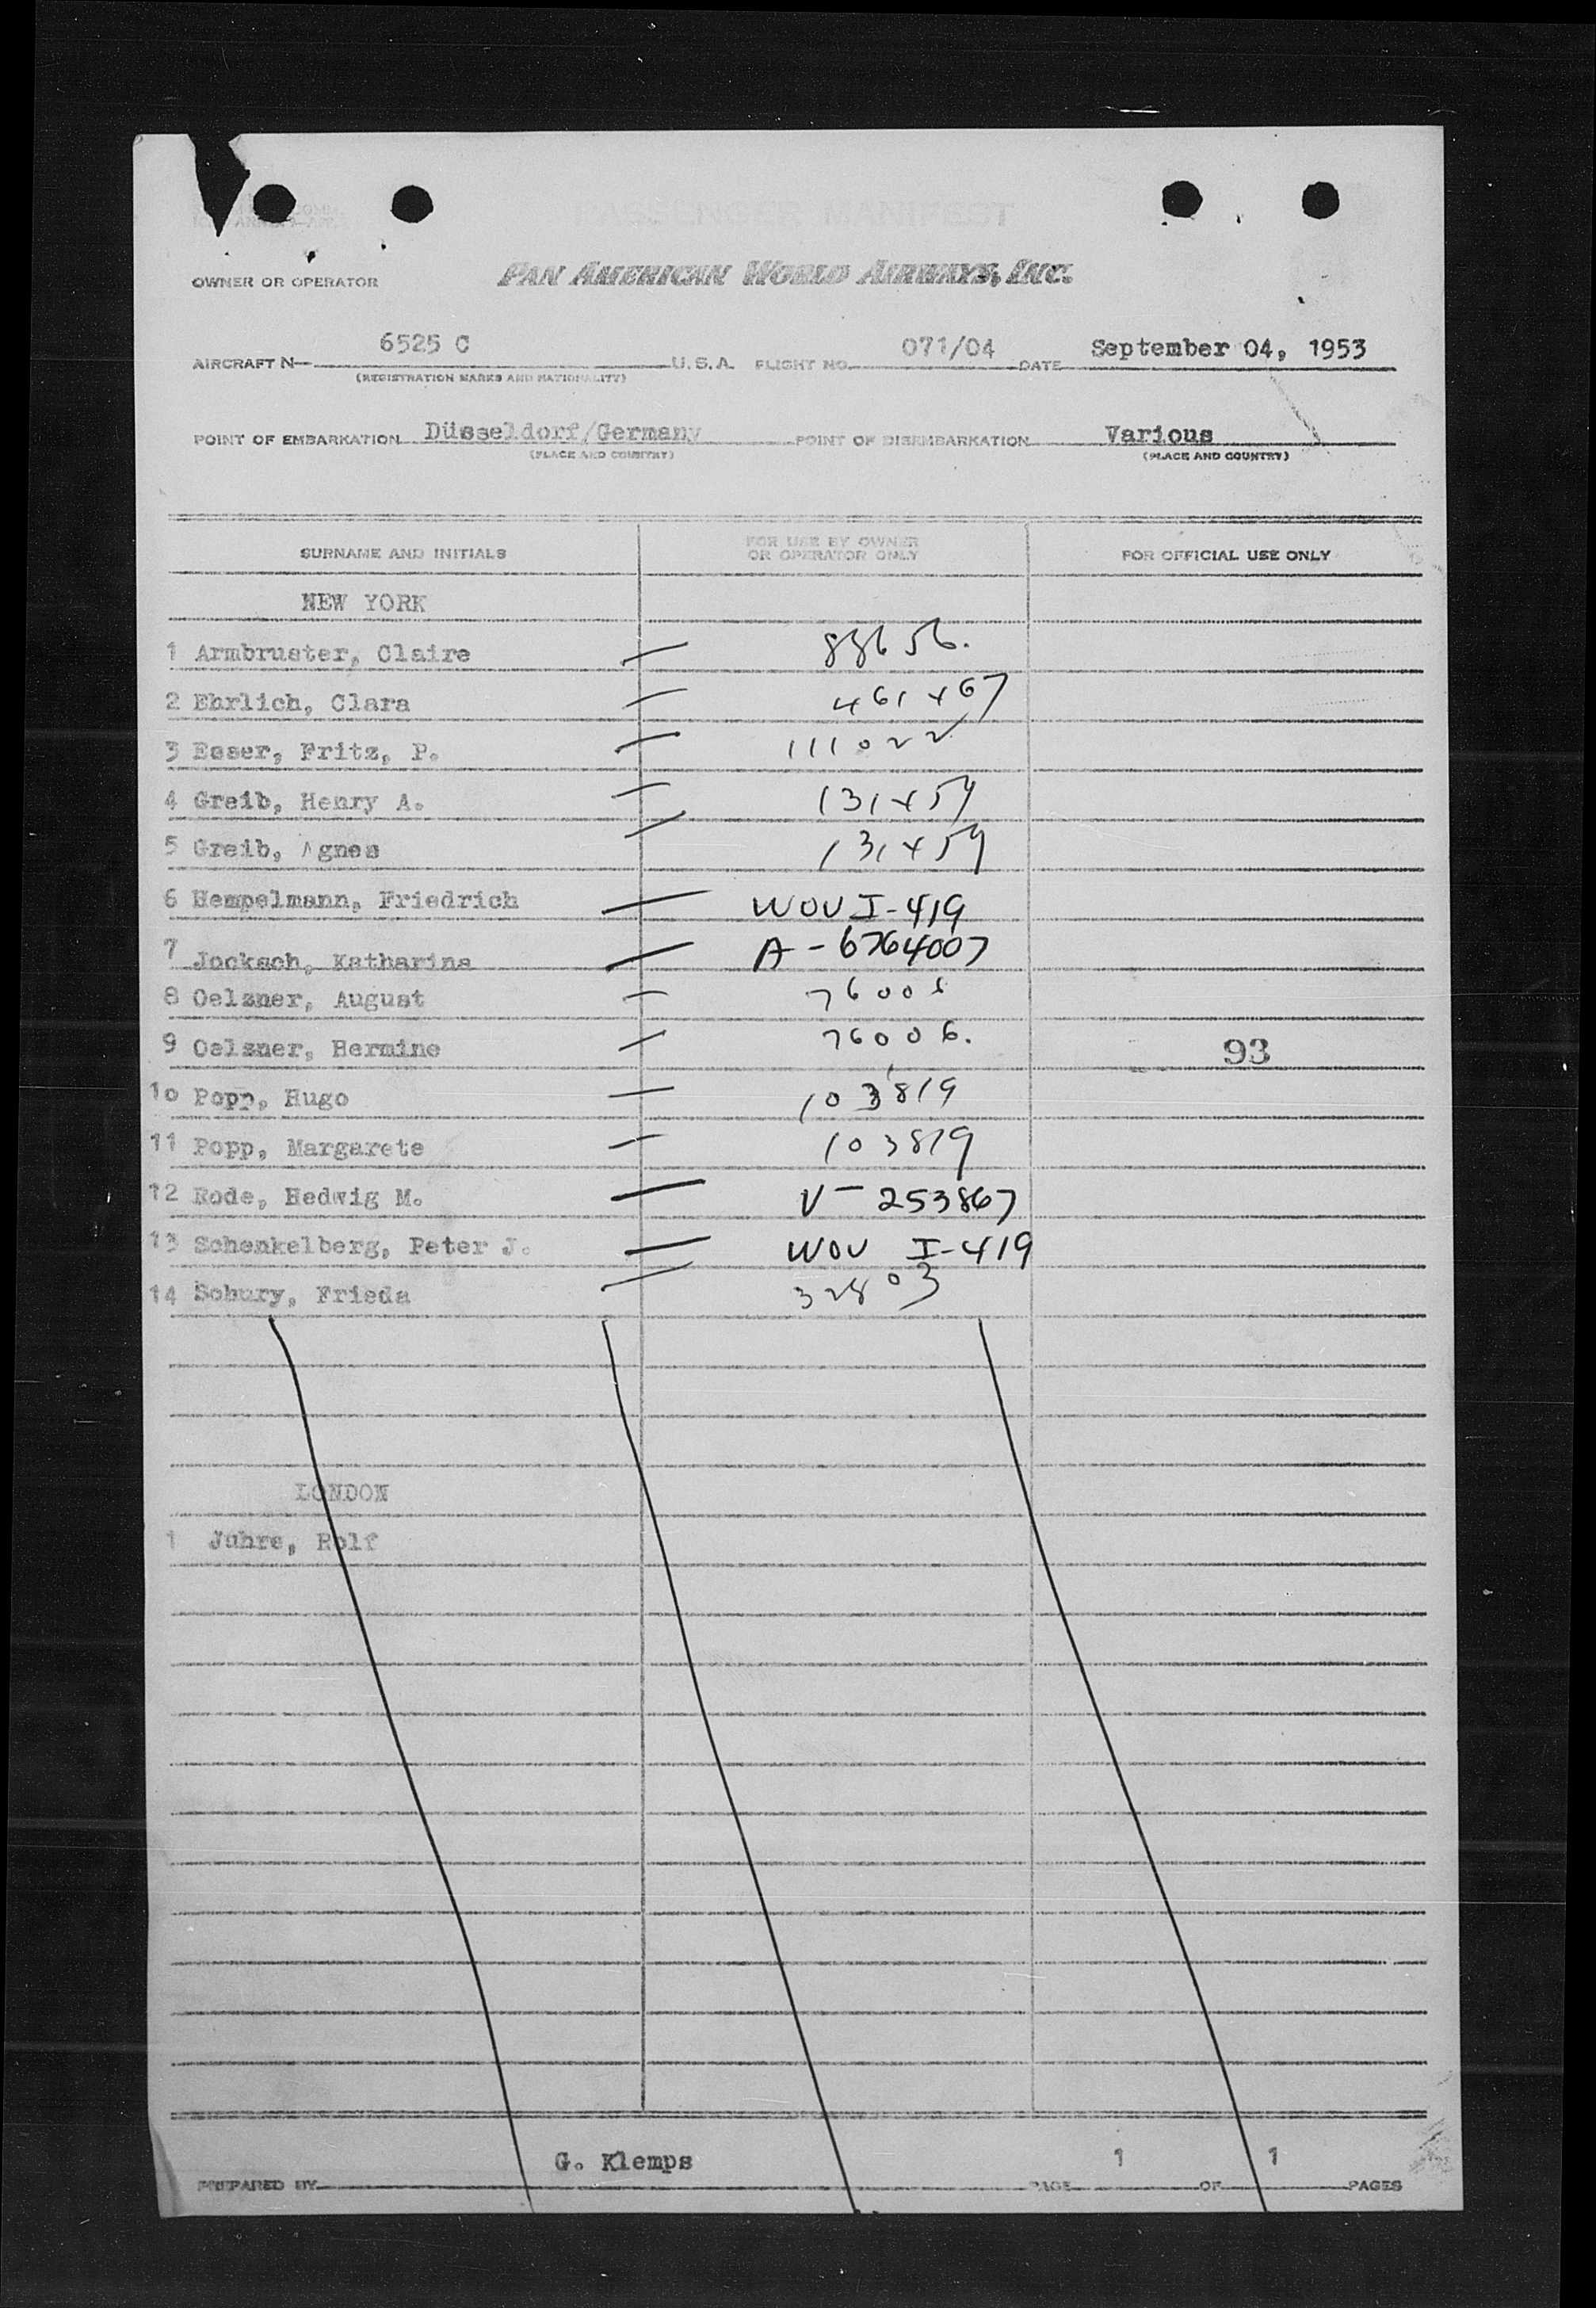 PASSENGER MANIFEST
OWNER OR OPERATOR PAN AMERICAN WORLD AIRWAYS, INC.
AIRCRAFT N— 6525 C U.S.A. FLIGHT NO. 071/04 DATE September 04, 1953
(REGISTRATION MARKS AND NATIONALITY)
POINT OF EMBARKATION Düsseldorf/Germany POINT OF DISEMBARKATION Various
(PLACE AND COUNTRY) (PLACE AND COUNTRY)
SURNAME AND INITIALS FOR USE BY OWNER OR OPERATOR ONLY FOR OFFICIAL USE ONLY
NEW YORK
1 Armbruster, Claire — 88656.
2 Ehrlich, Clara — 461467
3 Esser, Fritz, P. — 111022
4 Greib, Henry A. — 131459
5 Greib, Agnes — 131459
6 Hempelmann, Friedrich — WOV I-419
7 Jocksch, Katharina — A-6764007
8 Oelzner, August — 76006
9 Oelzner, Hermine — 76006. 93
10 Popp, Hugo — 103819
11 Popp, Margarete — 103819
12 Rode, Hedwig M. — V-253867
13 Schenkelberg, Peter J. — WOV I-419
14 Sobury, Frieda — 32803
LONDON
1 Juhre, Rolf
PREPARED BY G. Klemps PAGE 1 OF 1 PAGES